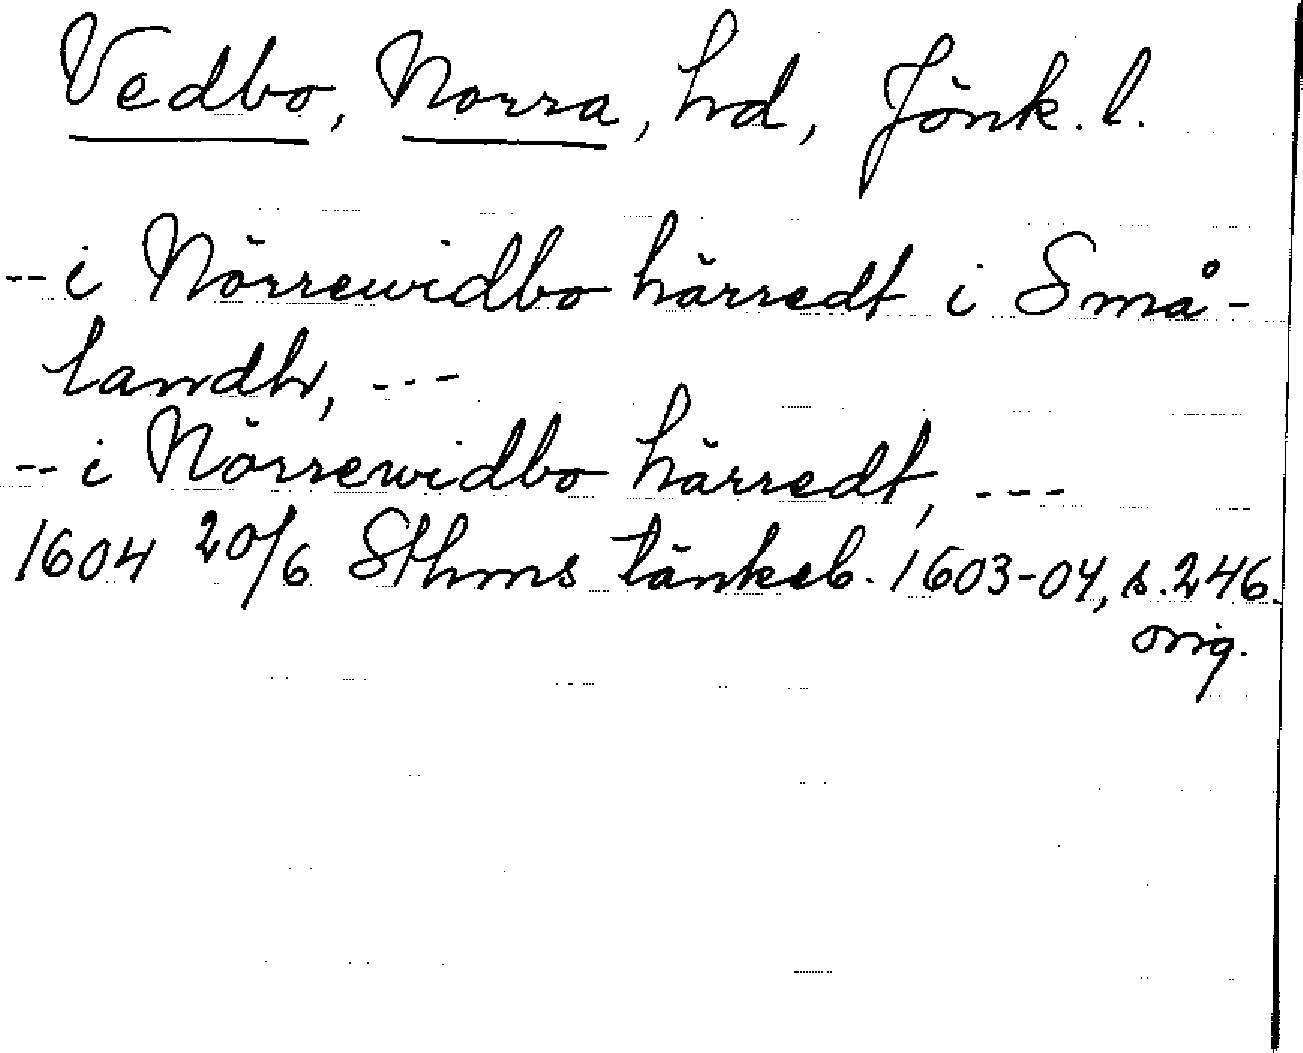 Vedbo, Norra, hd, Jönk. l.
-- i Nörrewidbo härredt i Små-
landh, ---
-- i Nörrewidbo härredt, ---
1604 20/6 Sthms tänkeb. 1603-04, s. 246.
orig.